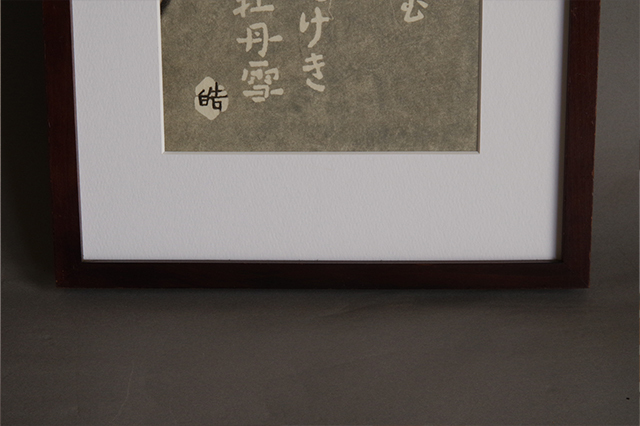 けき
牡丹雪
皓